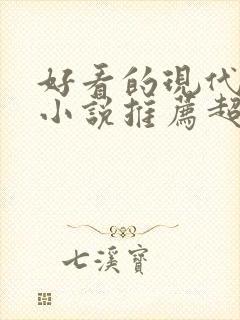 好看的現代
小說推薦超
七溪寶